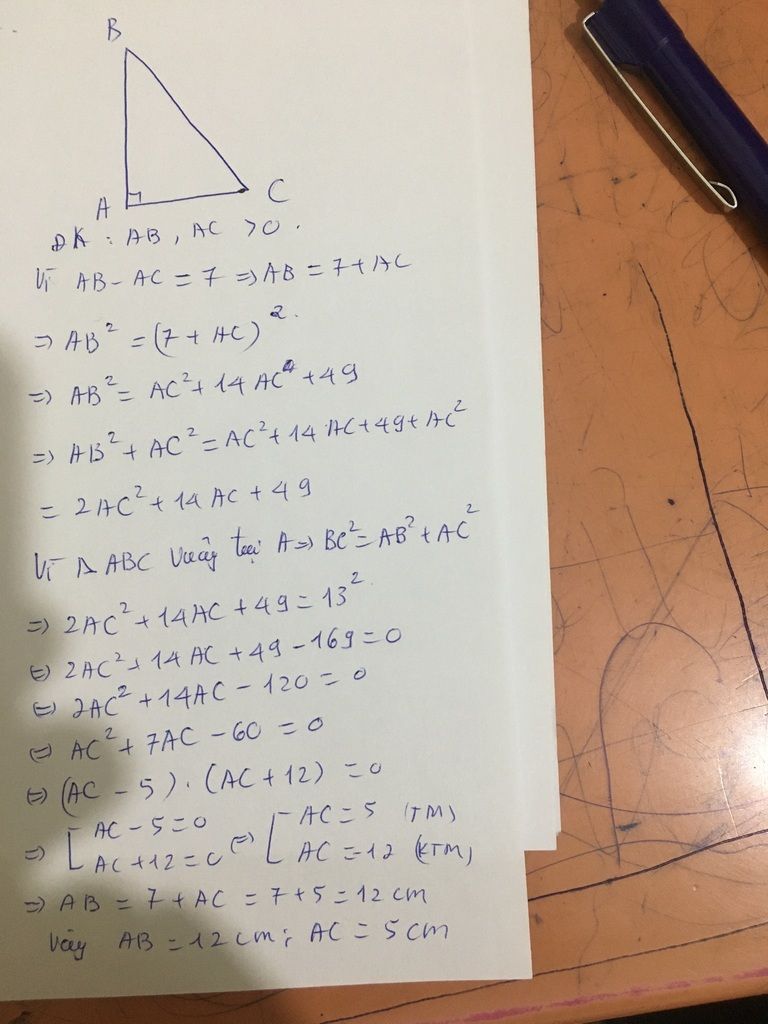 B
A
C
ĐK : AB, AC > 0.
Vì AB - AC = 7 => AB = 7 + AC
=> AB² = (7 + AC)².
=> AB² = AC² + 14 AC + 49
=> AB² + AC² = AC² + 14 AC + 49 + AC²
= 2AC² + 14 AC + 49
Vì Δ ABC vuông tại A => BC² = AB² + AC²
=> 2AC² + 14AC + 49 = 13²
<=> 2AC² + 14 AC + 49 - 169 = 0
<=> 2AC² + 14AC - 120 = 0
<=> AC² + 7AC - 60 = 0
<=> (AC - 5) . (AC + 12) = 0
=> [ AC - 5 = 0 <=> [ AC = 5 (TM)
AC + 12 = 0 AC = -12 (KTM)
=> AB = 7 + AC = 7 + 5 = 12 cm
Vậy AB = 12 cm ; AC = 5 cm